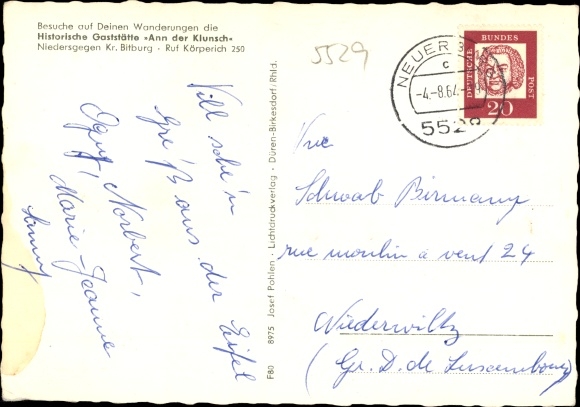 Besuche auf Deinen Wanderungen die
Historische Gaststätte »Ann der Klunsch«
Niedersgegen Kr. Bitburg · Ruf Körperich 250
5529
NEUER
c
-4.-8.64.-
5529
DEUTSCHE BUNDES POST
20
Vill schéi'n
Gréiß aus der Eifel
Norbert,
Marie-Jeanne
F80 8975 Josef Pohlen · Lichtdruckverlag · Düren-Birkesdorf/Rhld.
Schwab Birmany
rue moulin à vent 24
Niederwiltz
(Gr. D. de Luxembourg)